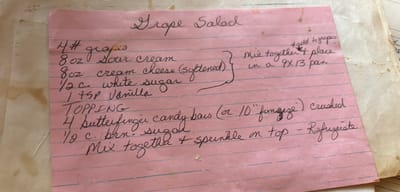 Grape Salad
4# grapes
8 oz sour cream
8 oz cream cheese (softened)
1/2 c. white sugar
1 tsp vanilla
Mix together & place
in a 9x13 pan
TOPPING
4 butterfinger candy bars (or 10 "funsize") crushed
1/2 c. brn. sugar
Mix together & sprinkle on top - Refrigerate